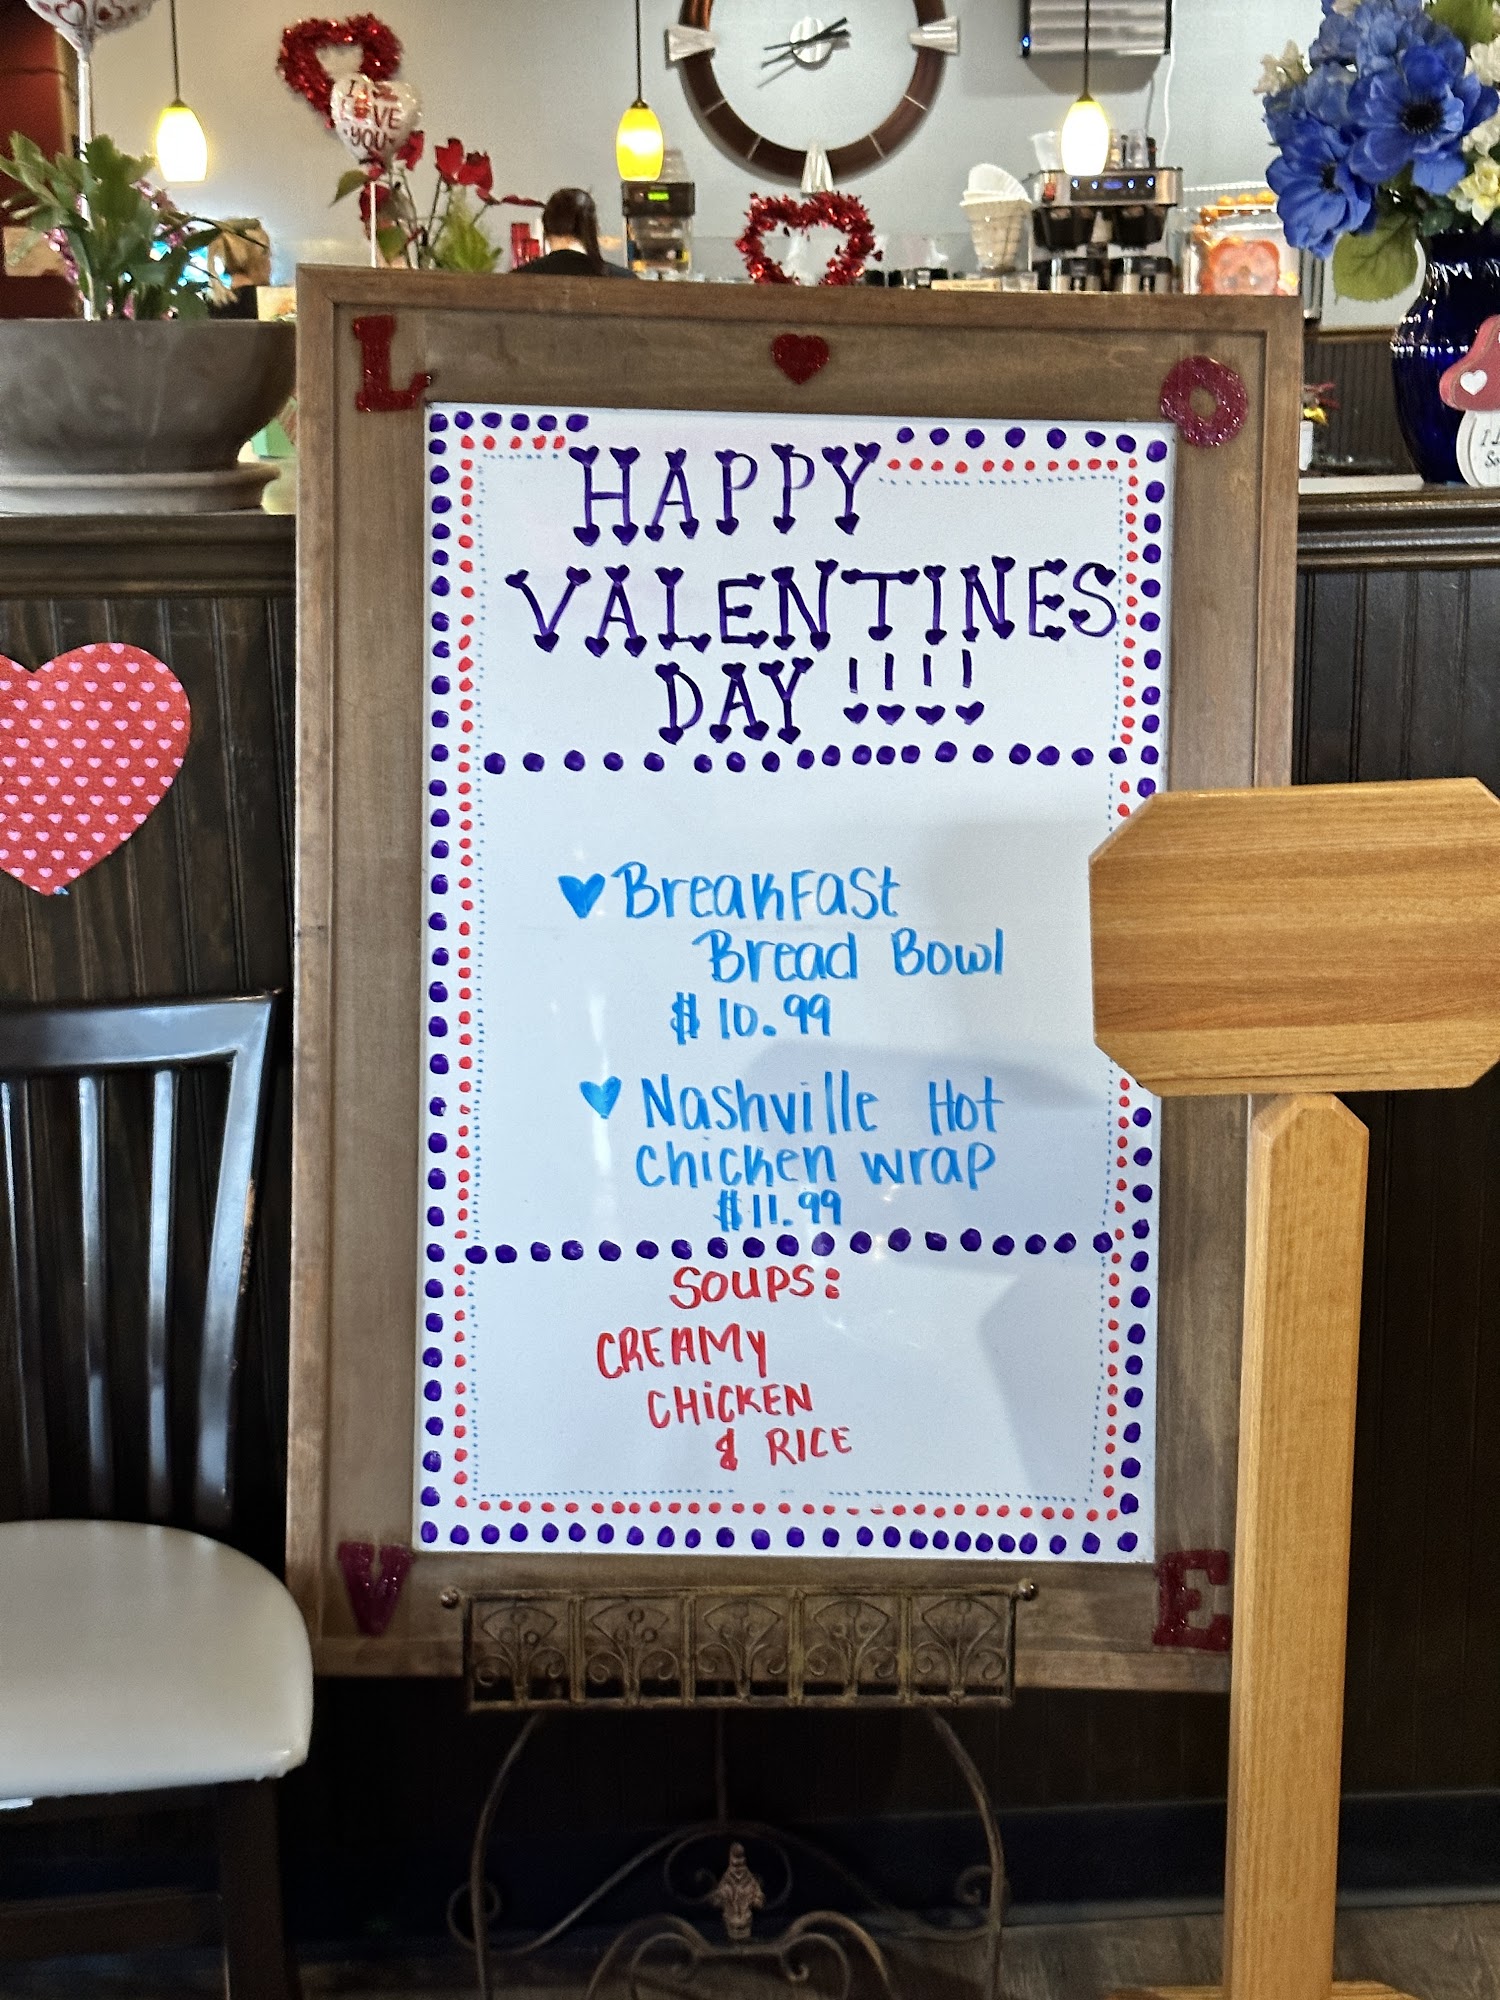 I LOVE
YOU
L O
HAPPY
VALENTINES
DAY !!!!
Breakfast
Bread Bowl
$10.99
Nashville Hot
chicken wrap
$11.99
SOUPS:
CREAMY
CHiCKEN
& RICE
V E